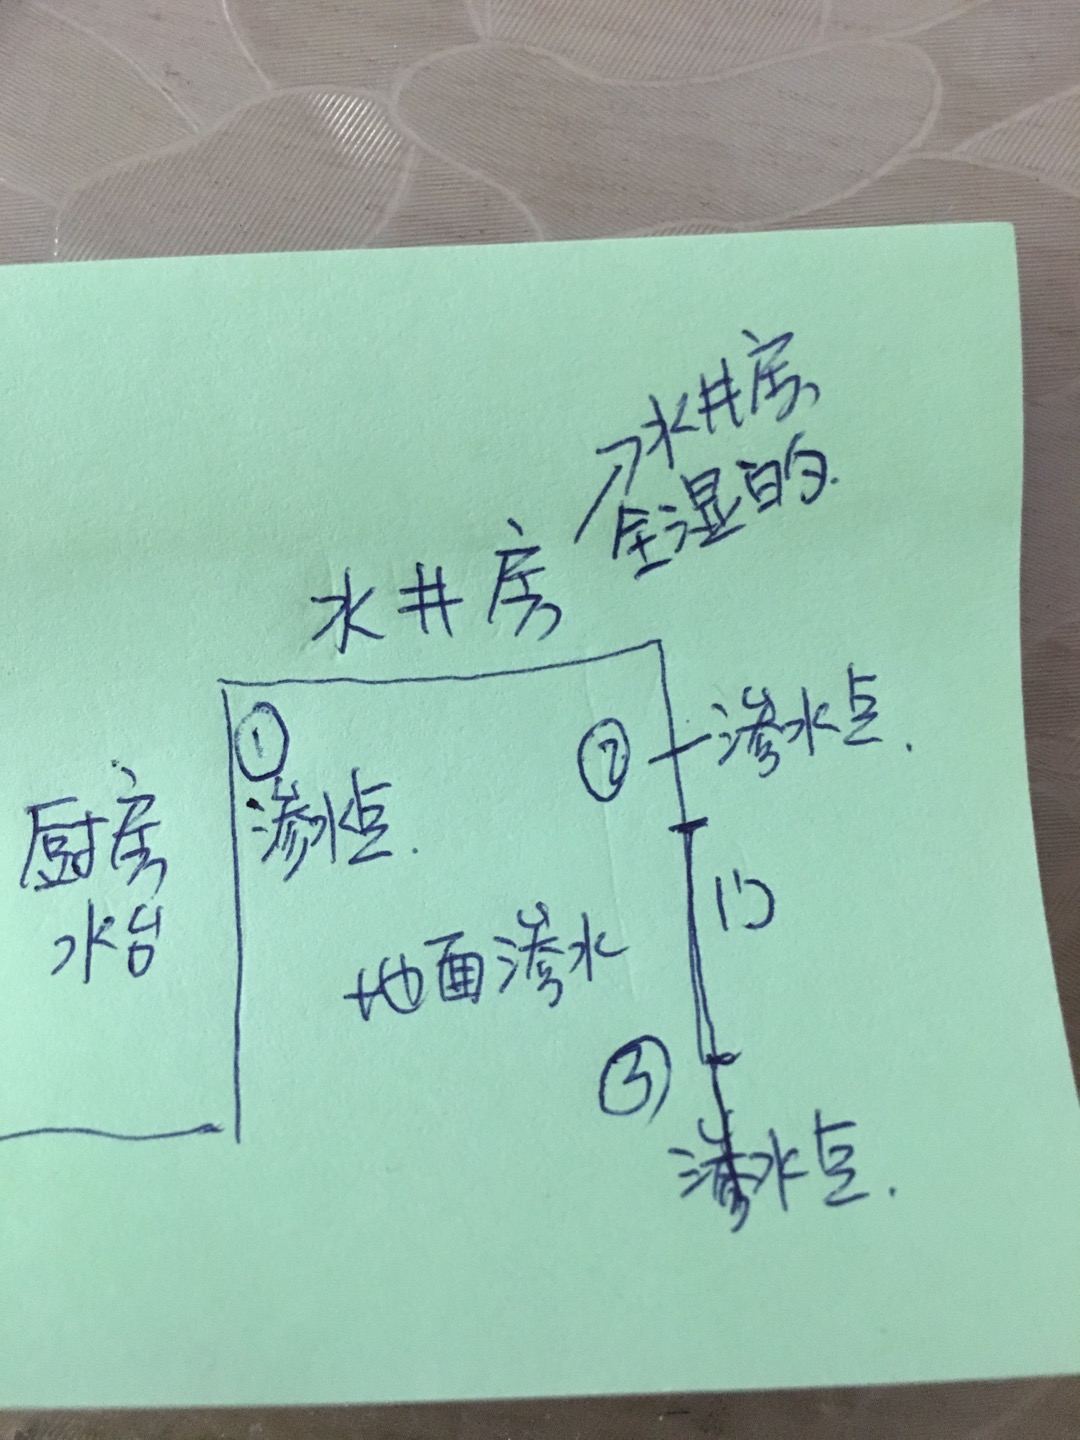 水井房
全湿的.
水井房
①
渗水点.
②
渗水点.
厨房
水台
门
地面渗水
③
渗水点.